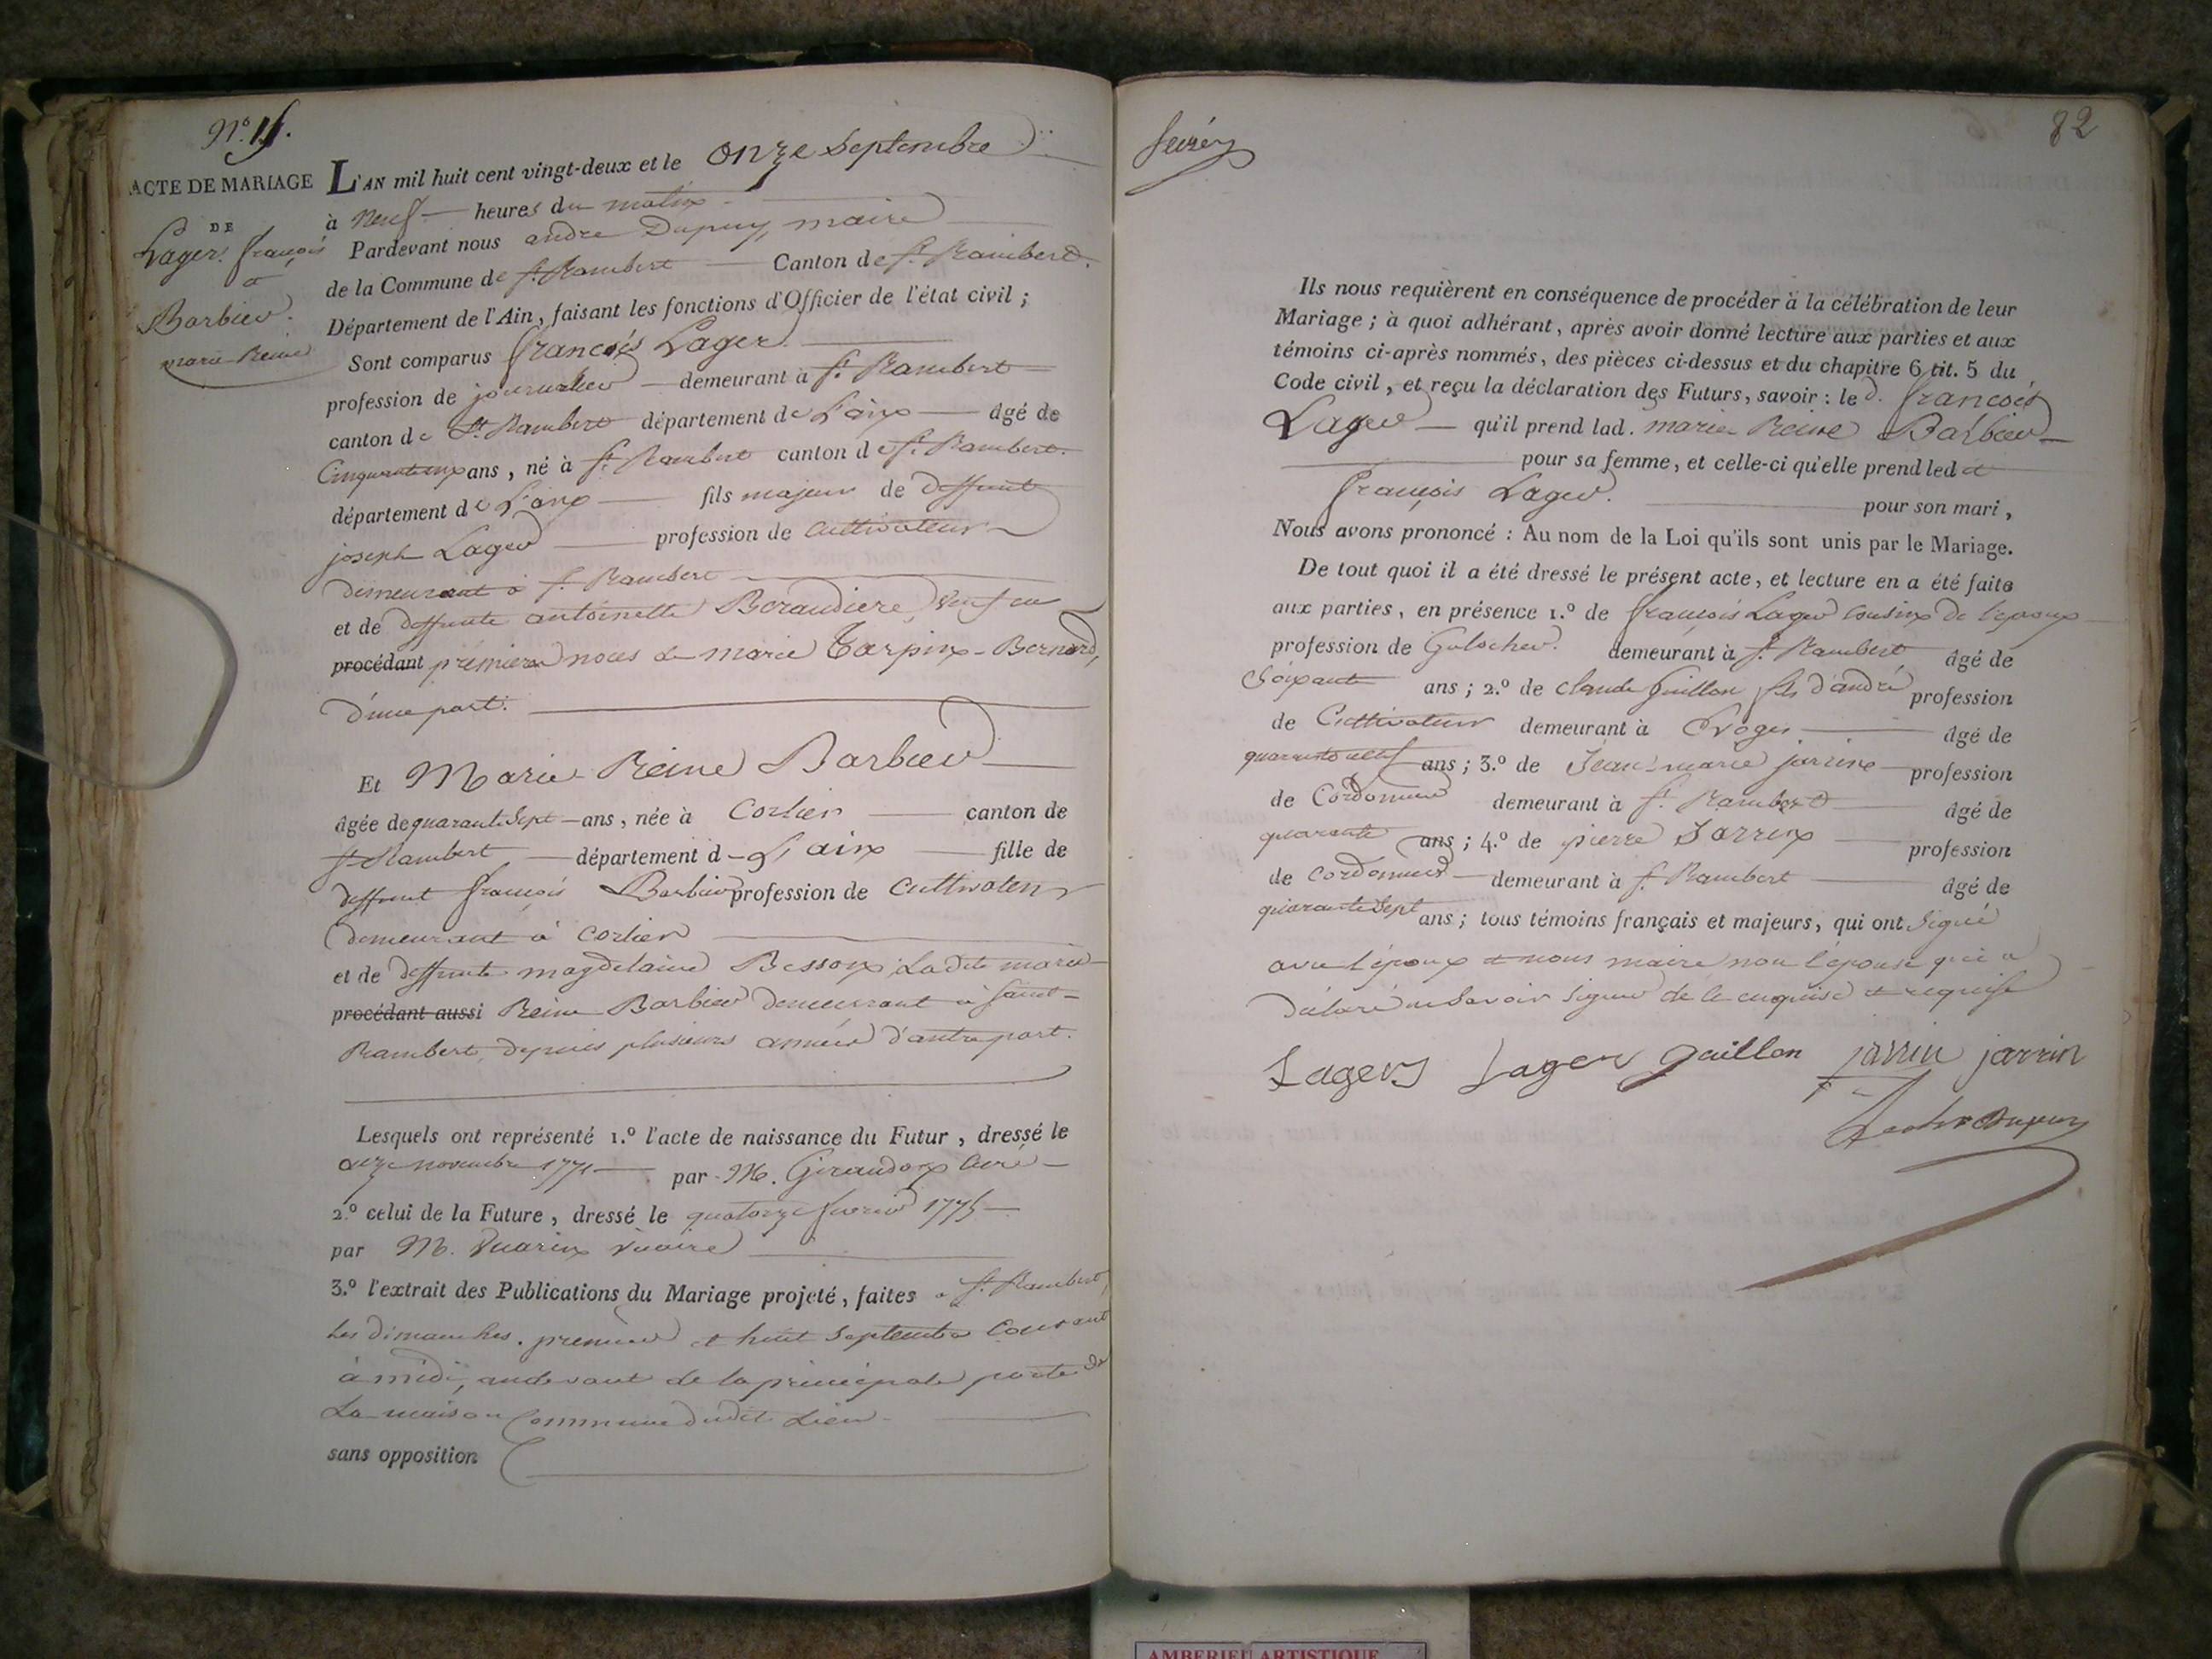 N.° 15.
ACTE DE MARIAGE
DE
Lager françois
a
Barbier
marie Reine
L'AN mil huit cent vingt-deux et le onze Septembre
à neuf heures du matin
Pardevant nous andré Dupuy, maire
de la Commune de St. Rambert Canton de St. Rambert
Département de l'Ain, faisant les fonctions d'Officier de l'état civil ;
Sont comparus françois Lager
profession de journalier demeurant à St. Rambert
canton de St. Rambert département de L'ain âgé de
ans, né à St. Rambert canton de St. Rambert.
département de L'ain fils majeur de deffunt
joseph Lager profession de Cultivateur
demeurant à St. Rambert
et de deffunte antoinette Beraudiere, veuf en
procédant premieres noces de marie Tarpin-Bernard,
d'une part.
Et Marie Reine Barbier
âgée de quarante Sept ans, née à Corlier canton de
St. Rambert département d L'ain fille de
deffunt françois Barbier profession de Cultivateur
demeurant à Corlier
et de deffunte magdelaine Besson, Ladite marie
procédant aussi Reine Barbier demeurant à Saint-
Rambert, depuis plusieurs années d'autre part.
Lesquels ont représenté 1.° l'acte de naissance du Futur, dressé le
onze novembre 1771 par M. Giraudon Curé
2.° celui de la Future, dressé le quatorze fevrier 1775
par M. Vuarin vicaire
3.° l'extrait des Publications du Mariage projeté, faites a St. Rambert,
les dimanches premier et huit Septembre Courant
à midi, audevant de la principale porte de
La maison Commune dudit Lieu
sans opposition
82
Ils nous requièrent en conséquence de procéder à la célébration de leur
Mariage ; à quoi adhérant, après avoir donné lecture aux parties et aux
témoins ci-après nommés, des pièces ci-dessus et du chapitre 6 tit. 5 du
Code civil, et reçu la déclaration des Futurs, savoir : le d. françois
Lager qu'il prend lad. marie Reine Barbier
pour sa femme, et celle-ci qu'elle prend led
françois Lager. pour son mari,
Nous avons prononcé : Au nom de la Loi qu'ils sont unis par le Mariage.
De tout quoi il a été dressé le présent acte, et lecture en a été faite
aux parties, en présence 1.° de françois Lager cousin de l'epoux
profession de Galocher demeurant à St. Rambert âgé de
Soixante ans ; 2.° de claude Guillon fils d'andré profession
de Cultivateur demeurant à Evoges âgé de
quarante neuf ans ; 3.° de Jean-marie jarrin profession
de Cordonnier demeurant à St. Rambert âgé de
quarante ans ; 4.° de pierre Jarrin profession
de Cordonnier demeurant à St. Rambert âgé de
quarante Sept ans ; tous témoins français et majeurs, qui ont Signé
avec l'époux et nous maire non l'épouse qui a
déclaré ne Savoir Signer de ce enquise et requise
Lager Lager guillon jarrin jarrin
Dupuy
AMBERIEU ARTISTIQUE